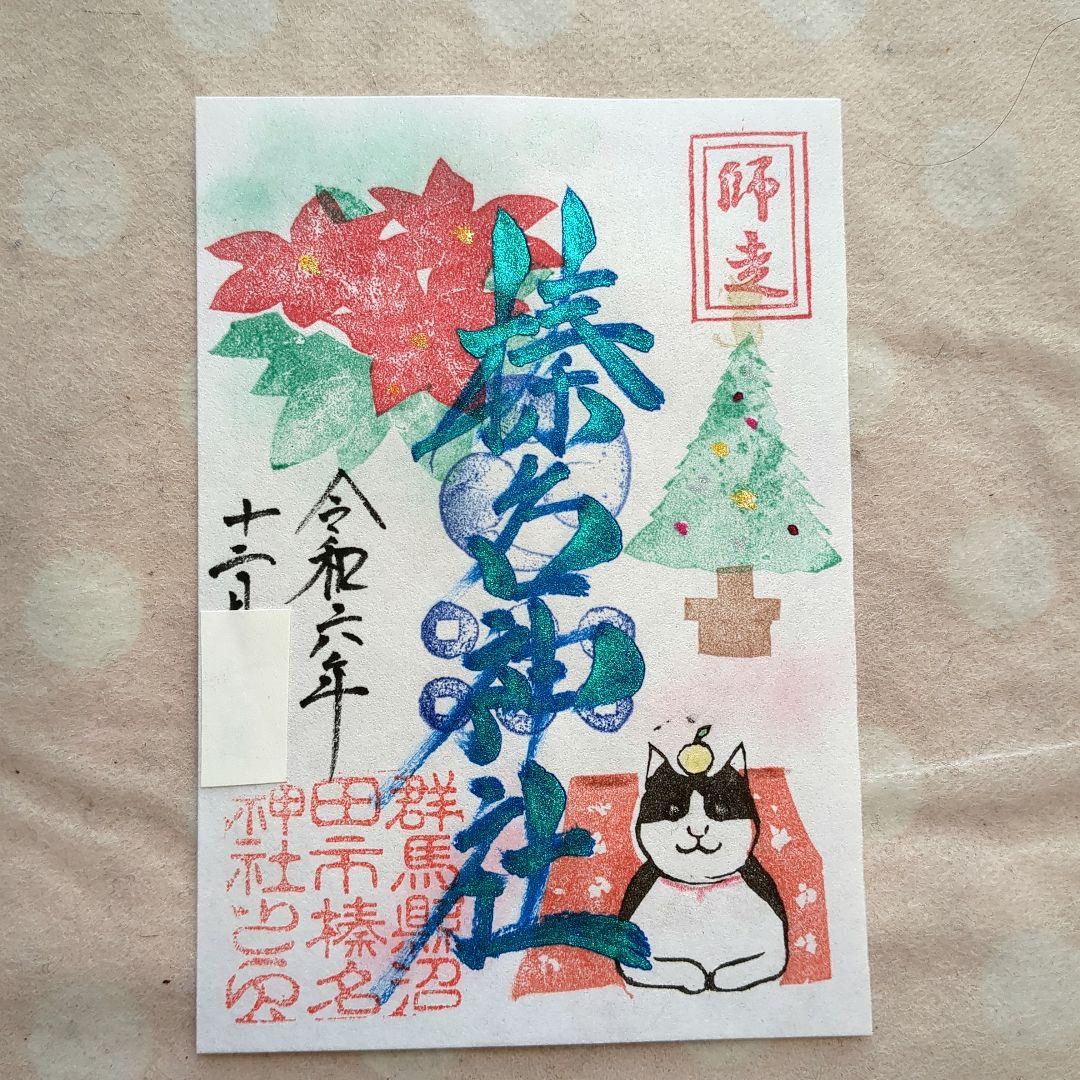 師走
榛名神社
令和六年
十二月
群馬縣沼
田市榛名
神社之印